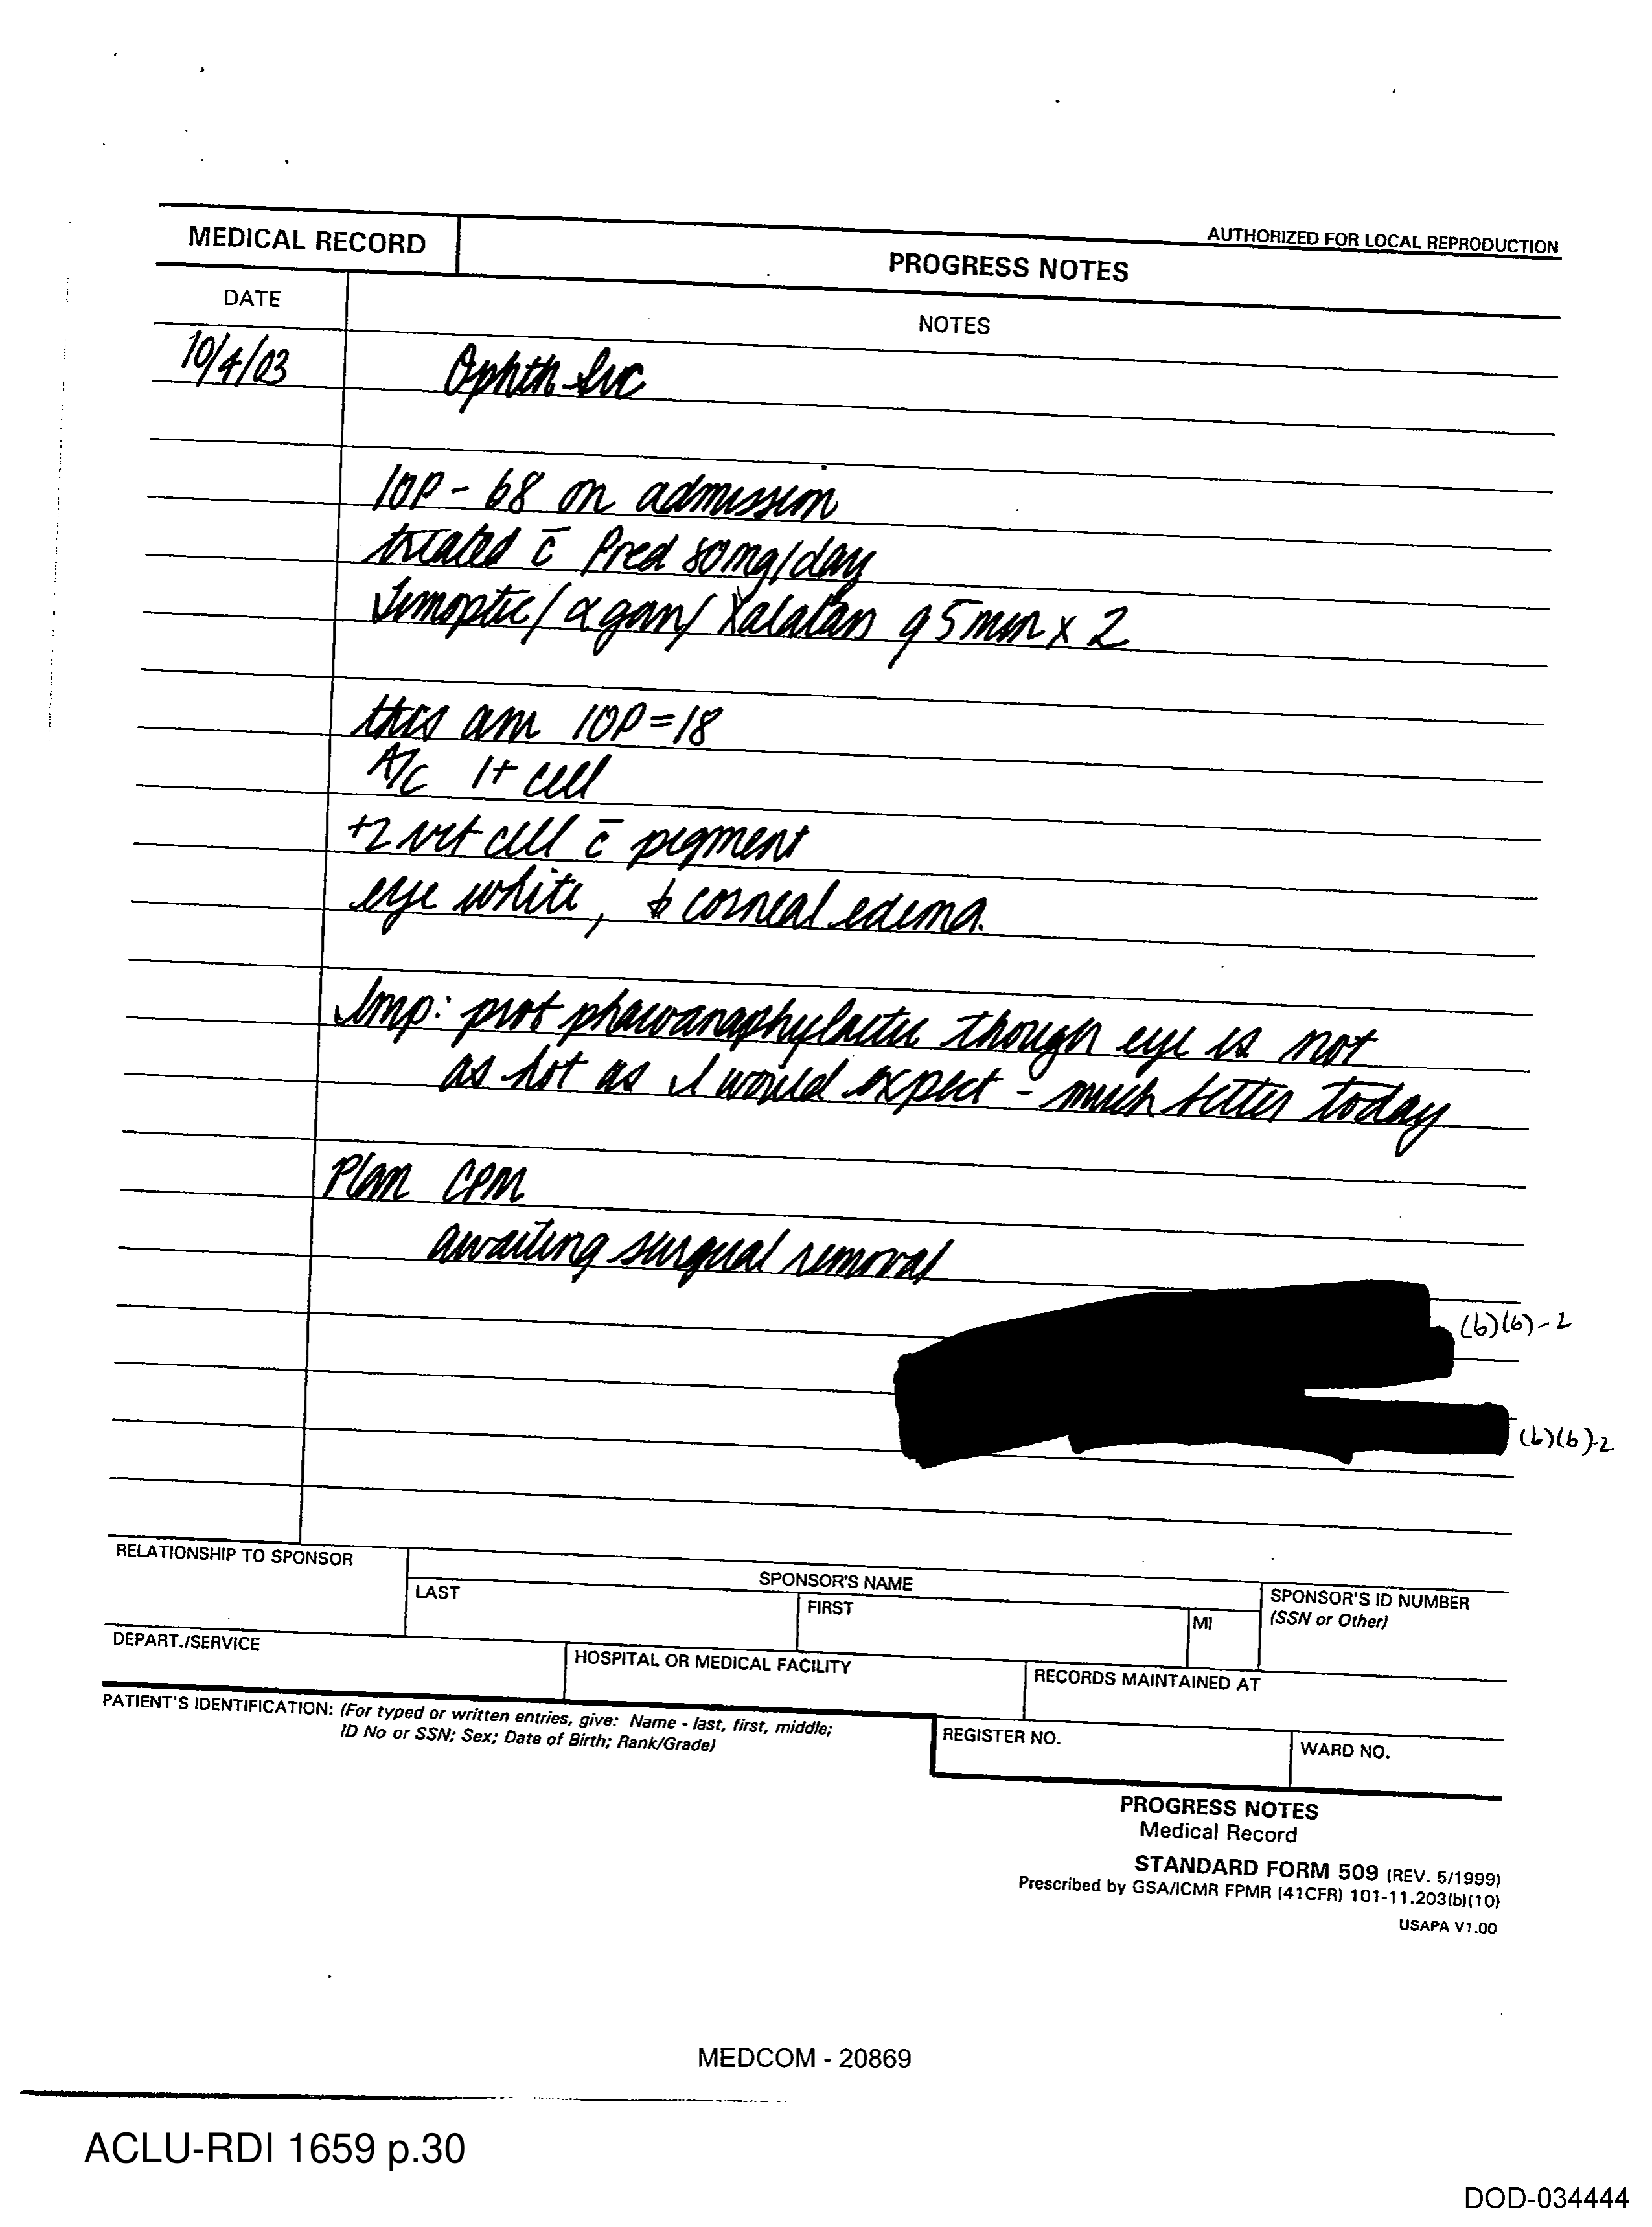 AUTHORIZED FOR LOCAL REPRODUCTION
MEDICAL RECORD
PROGRESS NOTES
DATE
NOTES
10/4/03
Ophth Svc
IOP - 68 on admission
treated c̄ Pred 80mg/day
Timoptic/αgan/Xalatan q 5 min x 2
this am IOP = 18
A/C 1+ cell
+2 vit cell c̄ pigment
eye white, corneal edema.
Imp: prob phacoanaphylactic though eye is not
as hot as I would expect - much better today
Plan CPM
awaiting surgical removal
(b)(6)-2
(b)(6)-2
RELATIONSHIP TO SPONSOR
SPONSOR'S NAME
LAST
FIRST
MI
SPONSOR'S ID NUMBER
(SSN or Other)
DEPART./SERVICE
HOSPITAL OR MEDICAL FACILITY
RECORDS MAINTAINED AT
PATIENT'S IDENTIFICATION: (For typed or written entries, give: Name - last, first, middle;
ID No or SSN; Sex; Date of Birth; Rank/Grade)
REGISTER NO.
WARD NO.
PROGRESS NOTES
Medical Record
STANDARD FORM 509 (REV. 5/1999)
Prescribed by GSA/ICMR FPMR (41CFR) 101-11.203(b)(10)
USAPA V1.00
MEDCOM - 20869
ACLU-RDI 1659 p.30
DOD-034444